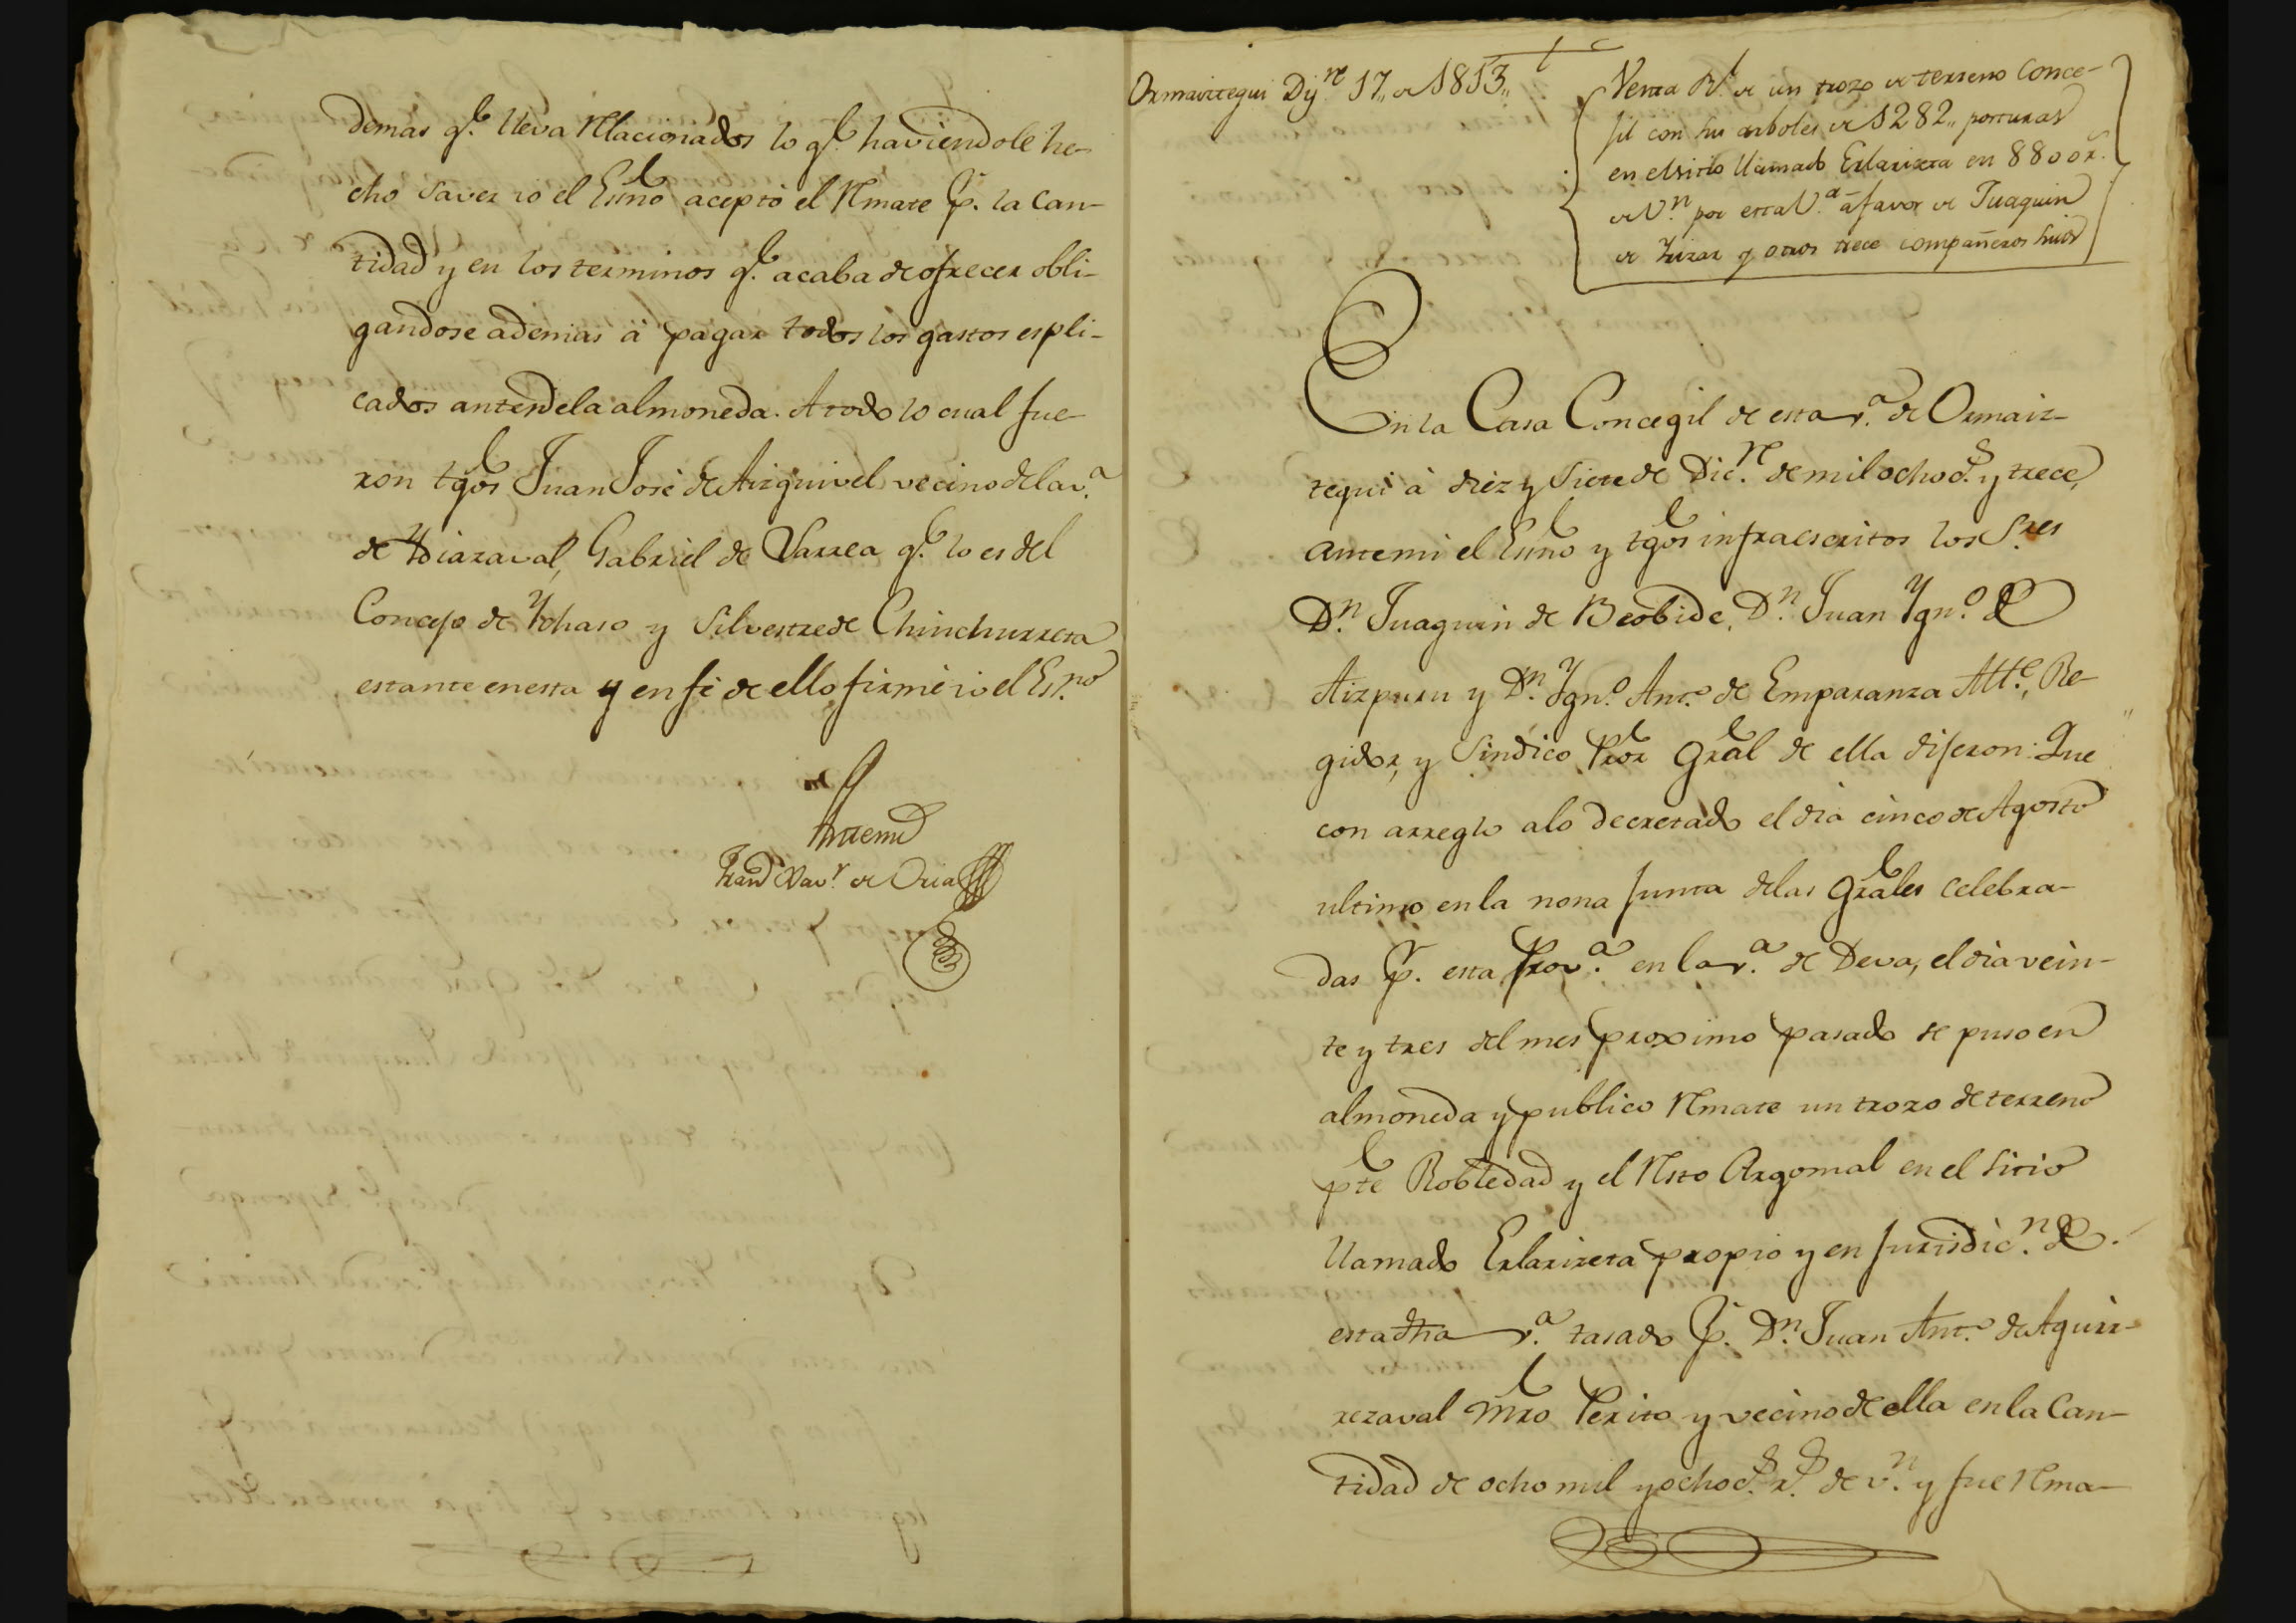 demas qe. lleva Relacionados lo qe. haviendole he-
cho saver io el Esno aceptó el Rmate Pr. la can-
tidad y en los terminos qe. acaba de ofrecer obli-
gandose ademas á pagar todos los gastos espli-
cados antes de la almoneda. A todo lo cual fue-
ron tgos Juan José de Aizquivel vecino de la va.
de Ydiazaval, Gabriel de Varrea qe. lo es del
Concejo de Ychaso y Silvestre de Chinchurreta
estante en esta y en fé de ello firmé io el Esno.
Antemi
Franco Xavr. de Oria
Ormaiztegui Dize. 17,, de 1813,,
Venta Rl. de un trozo de terreno Conce-
jil con sus arboles de 1282,, posturas
en el sitio llamado Erlarizeta en 8800 rs.
de Vn. por esta Va. á favor de Juaquin
de Yrizar y otros trece compañeros suios
En la Casa Concegil de esta va. de Ormaiz-
tegui á diez y siete de Dicre. de mil ochocs. y trece,
ante mi el Esno y tgos infraescritos los Sres.
Dn. Juaquin de Beobide, Dn. Juan Ygno. de
Aizpuru y Dn. Ygno. Anto. de Emparanza Alte., Re-
gidor, y Sindico Pror Gral de ella dijeron: Que
con arreglo alo decretado el dia cinco de Agosto
ultimo en la nona Junta delas Grales celebra-
das Pr. esta Prova. en la va. de Deva, el dia vein-
te y tres del mes proximo pasado se puso en
almoneda y publico Rmate un trozo de terreno
pte Robledad y el Rsto Argomal en el sitio
llamado Erlarizeta propio y en Jurisdicn. de
esta dha va. tasado Pr. Dn. Juan Anto. de Aguir-
rezaval Mro Perito y vecino de ella en la Can-
tidad de ocho mil y ochocs. rs. de vn. y fue Rma-